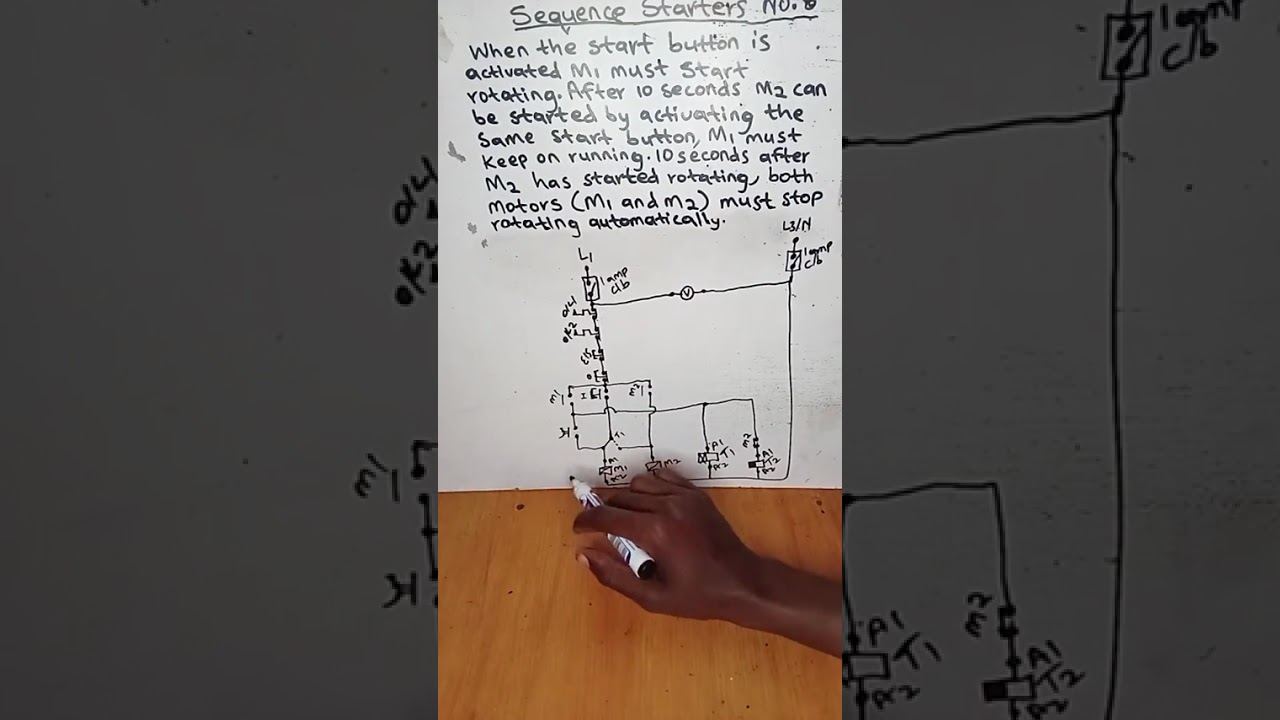 Sequence Starters No.8
When the start button is
activated M1 must start
rotating. After 10 seconds M2 can
be started by activating the
same start button, M1 must
keep on running. 10 seconds after
M2 has started rotating, both
motors (M1 and M2) must stop
rotating automatically.
L1
L3/N
1 amp
c/b
1 amp
c/b
V
M1
M2
T1
M2
A1
T1
A2
M2
A1
T2
A2
A1
M1
A2
M2